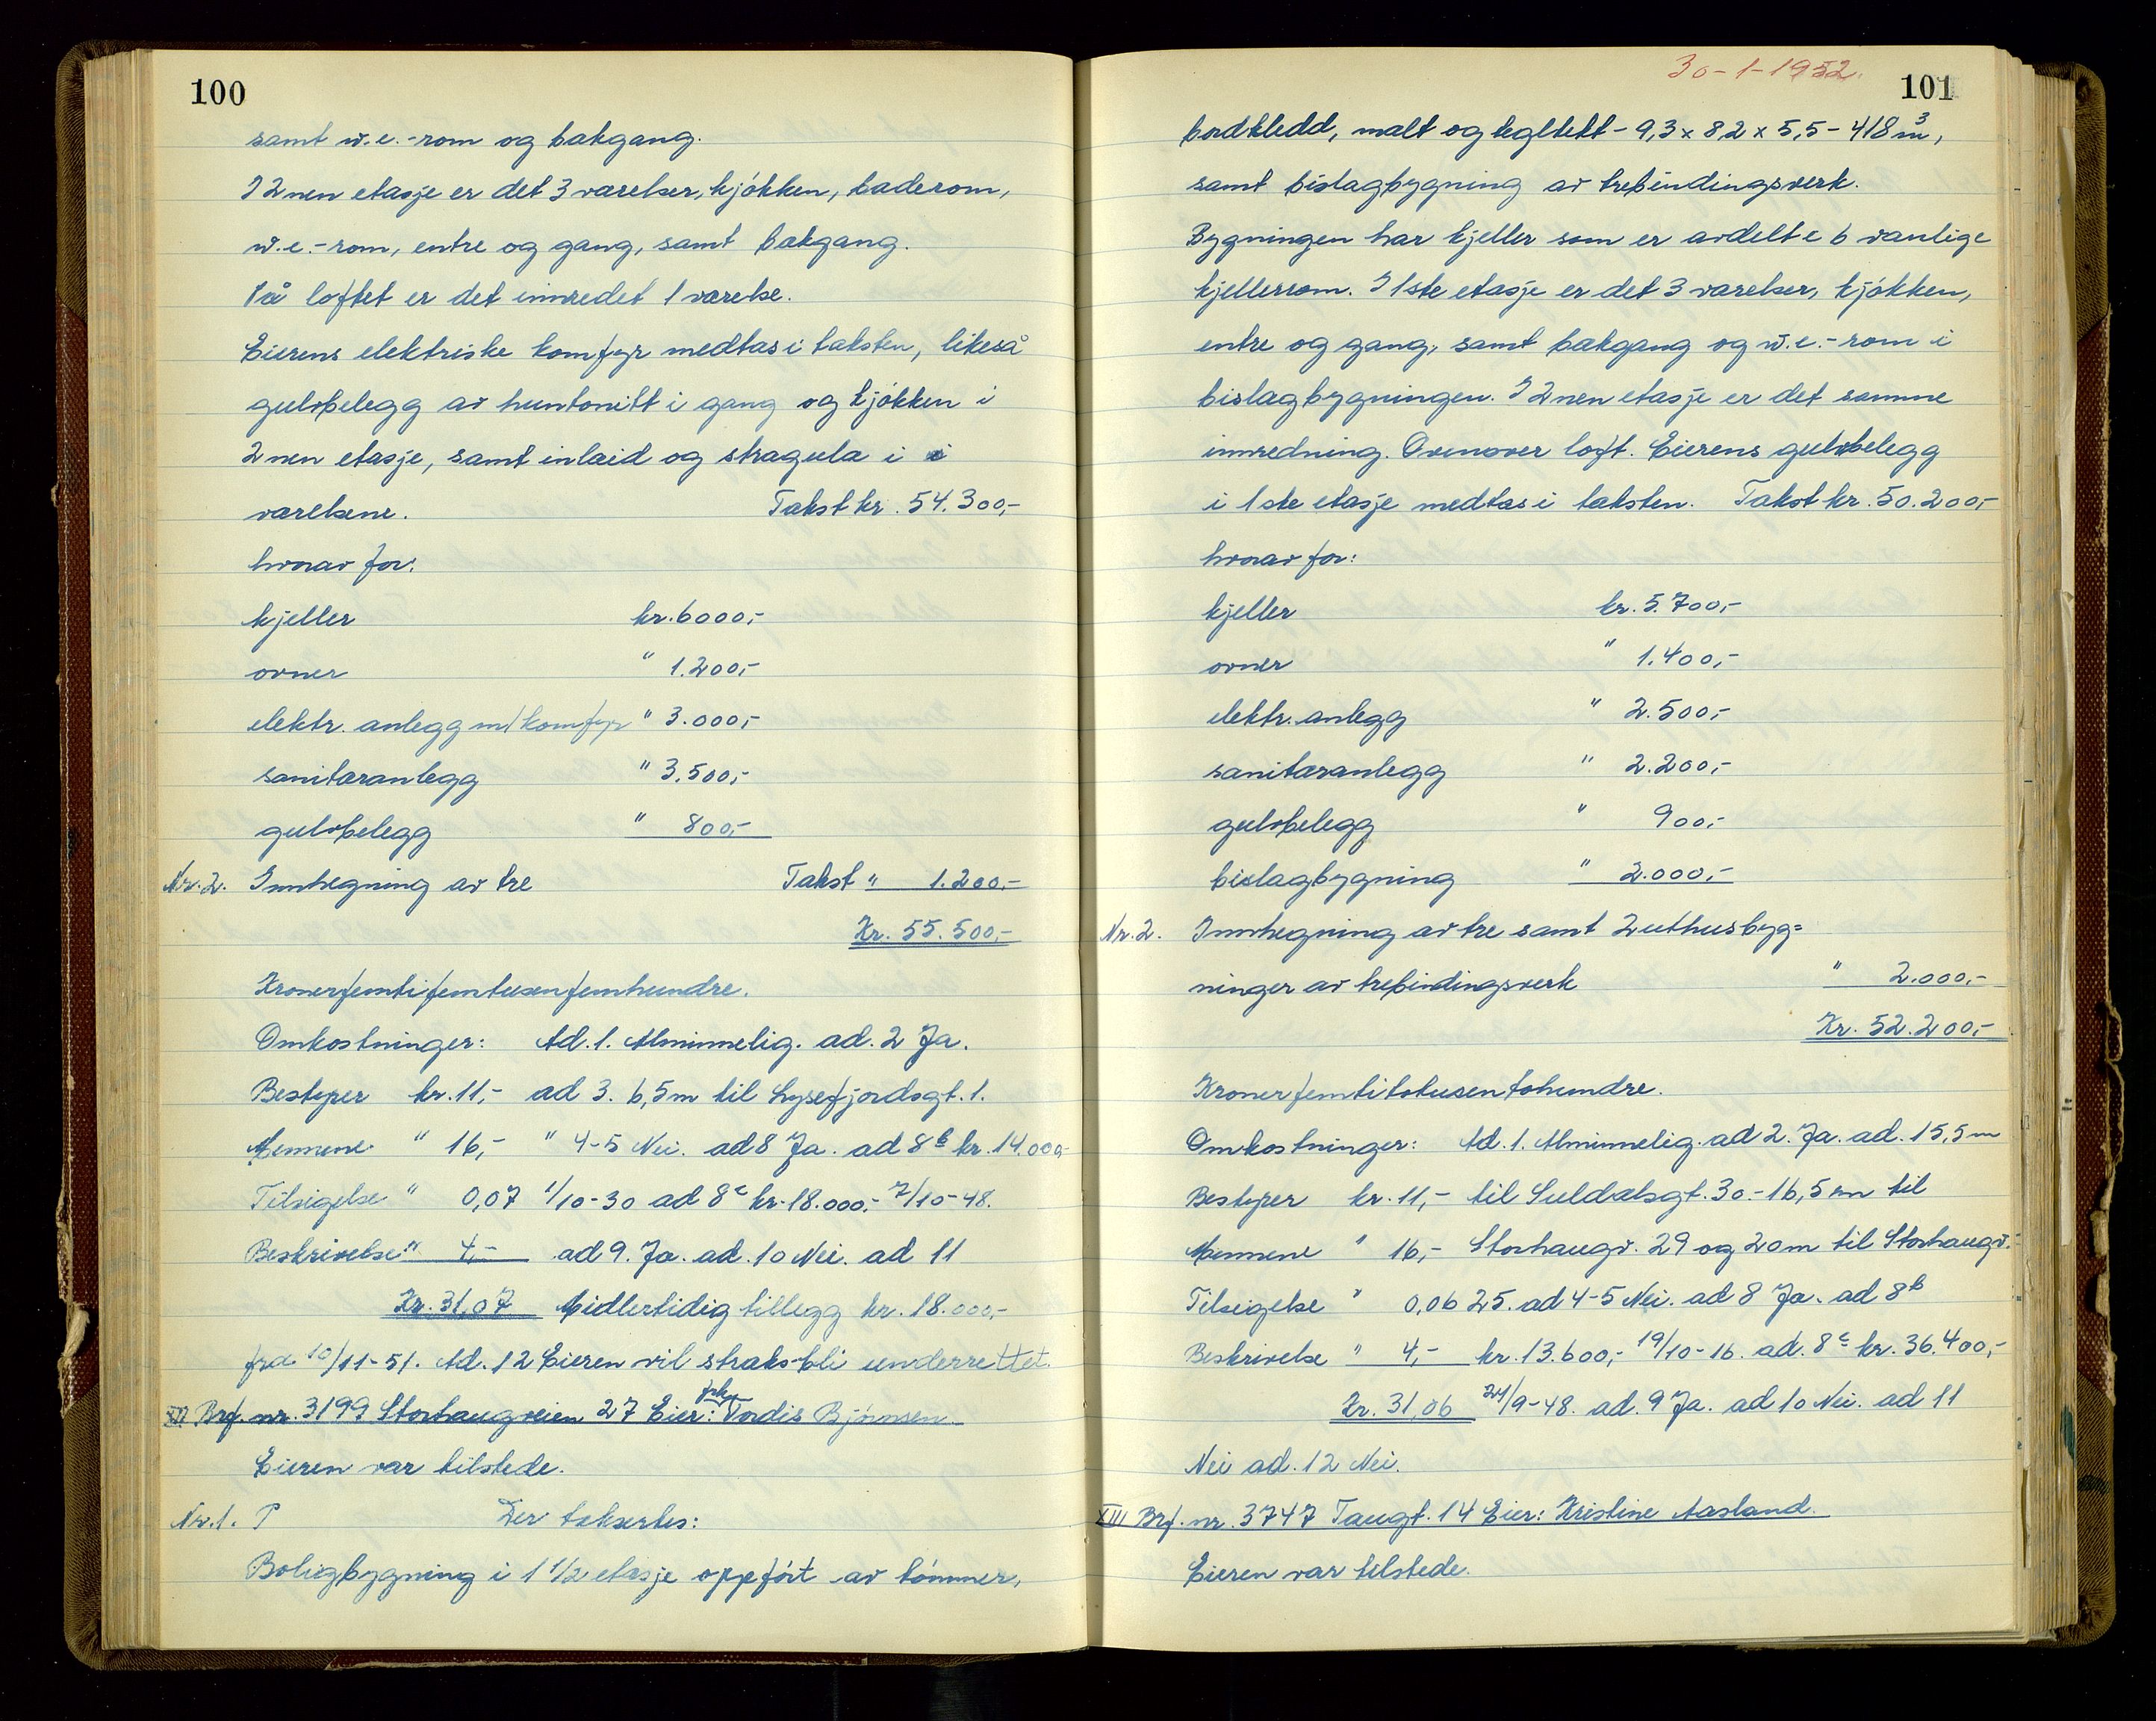 100
samt w.c.-rom og bakgang.
I 2nen etasje er det 3 værelser, kjøkken, baderom,
w.c.-rom, entre og gang, samt bakgang.
På loftet er det innredet 1 værelse.
Eierens elektriske komfyr medtas i taksten, likeså
gulvbelegg av huntonitt i gang og kjøkken i
2nen etasje, samt inlaid og stragula i
værelsene. Takst kr. 54.300,-
hvorav for:
kjeller kr. 6000,-
ovner " 1.200,-
elektr. anlegg m/komfyr " 3.000,-
sanitæranlegg " 3.500,-
gulvbelegg " 800,-
Nr. 2. Innhegning av tre Takst " 1.200,-
Kr. 55.500,-
Kronerfemtifemtusenfemhundre.
Omkostninger: Ad. 1. Alminnelig. ad. 2 Ja.
Bestyrer kr. 11,- ad 3. 6,5m til Lysefjordsgt. 1.
Mennene " 16,- " 4-5 Nei. ad 8 Ja. ad 8b kr. 14.000,-
Tilsigelse " 0,07 1/10-30 ad 8c kr. 18.000,- 7/10-48.
Beskrivelse " 4,- ad 9. Ja. ad. 10 Nei. ad 11
Kr. 31,07 Midlertidig tillegg kr. 18.000,-
fra 10/11-51. Ad. 12 Eieren vil straks bli underrettet.
XII Brf. nr. 3199 Storhaugveien 27 Eier: frk. Tordis Bjørnsen.
Eieren var tilstede.
Nr. 1. P Der takseres:
Boligbygning i 1 1/2 etasje oppført av tømmer,
30-1-1952.
101
bordkledd, malt og tegltekt - 9,3 x 8,2 x 5,5 - 418 m3,
samt bislagbygning av trebindingsverk.
Bygningen har kjeller som er avdelt i 6 vanlige
kjellerrom. I 1ste etasje er det 3 værelser, kjøkken,
entre og gang, samt bakgang og w.c.-rom i
bislagbygningen. I 2nen etasje er det samme
innredning. Ovenover loft. Eierens gulvbelegg
i 1ste etasje medtas i taksten. Takst kr. 50.200,-
hvorav for:
kjeller kr. 5.700,-
ovner " 1.400,-
elektr. anlegg " 2.500,-
sanitæranlegg " 2.200,-
gulvbelegg " 900,-
bislagbygning " 2.000,-
Nr. 2. Innhegning av tre samt 2 uthusbyg=
ninger av trebindingsverk " 2.000,-
Kr. 52.200,-
Kronerfemtitotusentohundre.
Omkostninger: Ad. 1. Alminnelig. ad 2. Ja. ad. 15,5m
Bestyrer kr. 11,- til Suldalsgt. 30.-16,5m til
Mennene " 16,- Storhaugv. 29 og 20m til Storhaugv.
Tilsigelse " 0,06 25. ad 4-5 Nei. ad 8 Ja. ad 8b
Beskrivelse " 4,- kr. 13.600,- 19/10-16. ad. 8c kr. 36.400,-
Kr. 31,06 24/9-48. ad. 9 Ja. ad 10 Nei. ad 11
Nei ad. 12 Nei.
XIII Brf. nr. 3747 Taugt. 14 Eier: Kristine Aasland.
Eieren var tilstede.